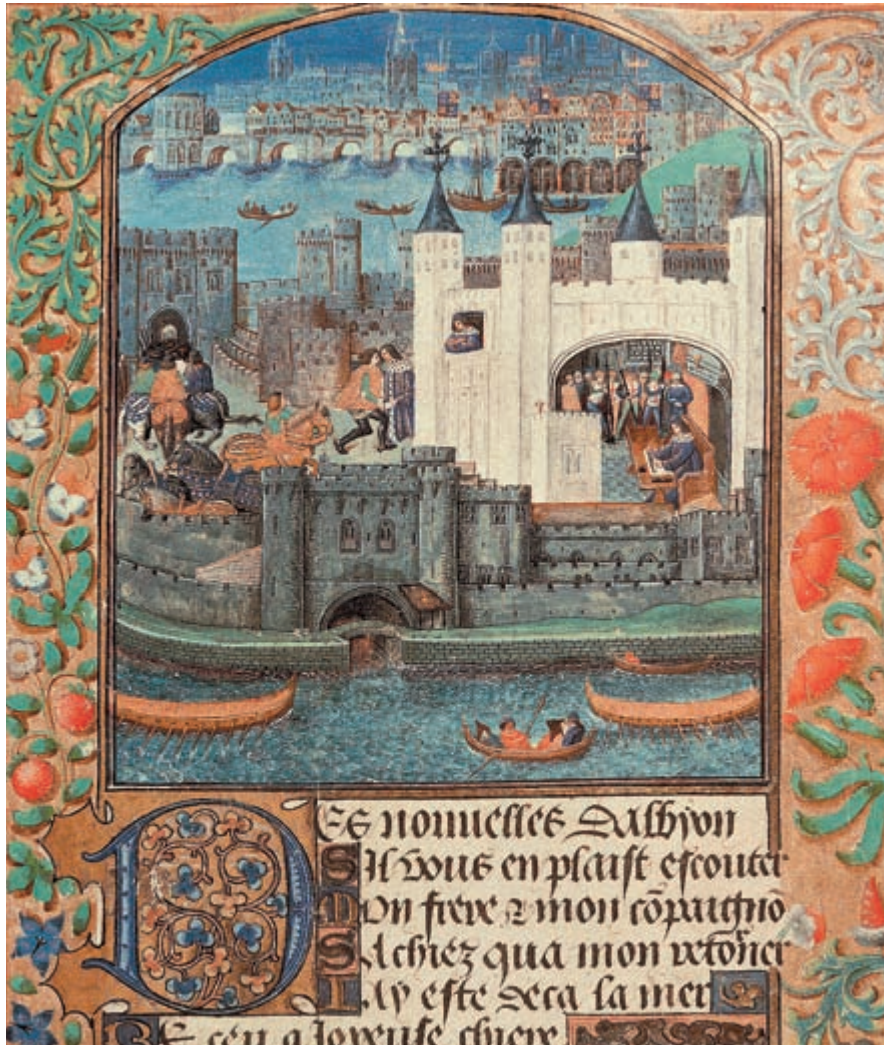 DES nouuelles Dalbyon
SIl vous en plaist escouter
MOn frere & mon cōpaignō
SAchiez qua mon retor̄ner
IAy este deca la mer
RE ceu a Joyeuse chiere